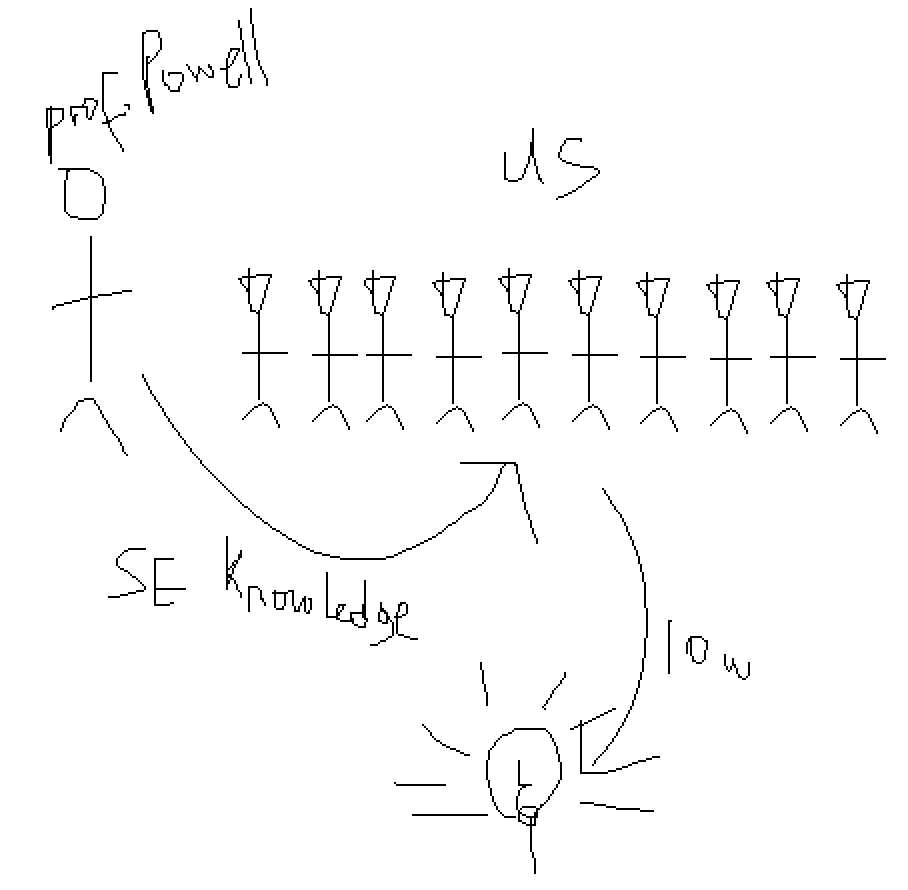 prof. Powell
US
SE Knowledge
10 w